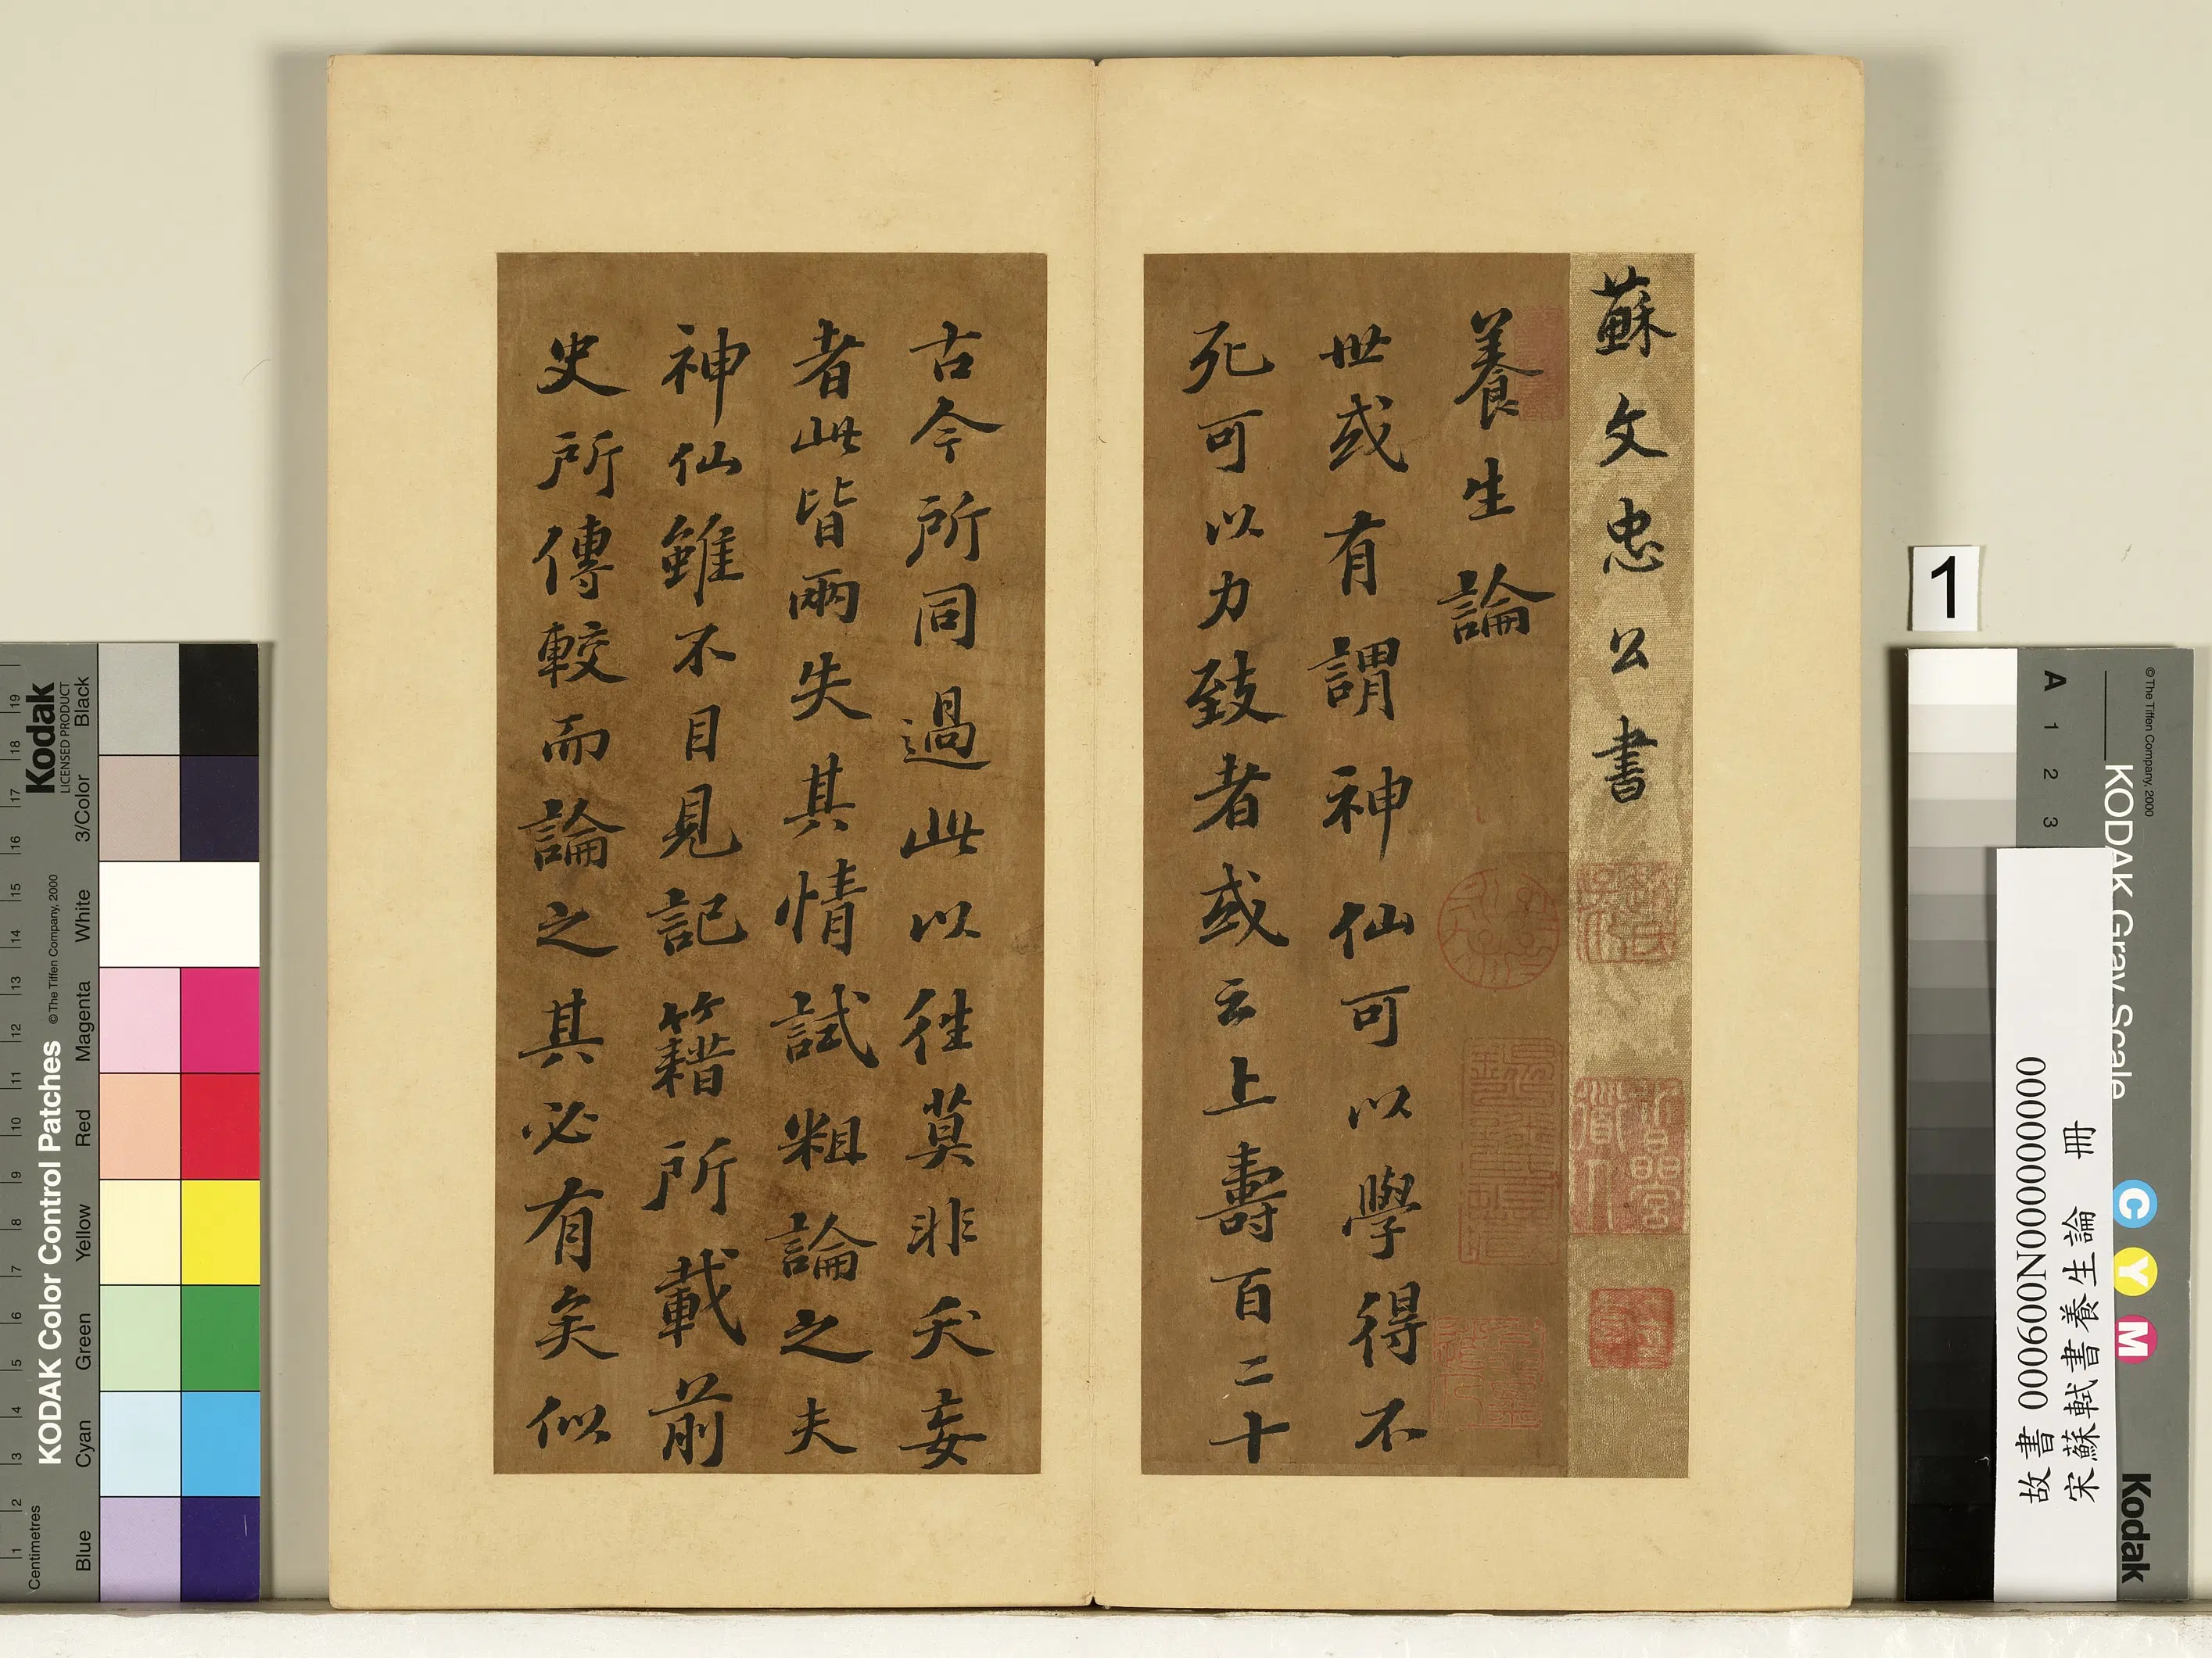 蘇文忠公書
養生論
世或有謂神仙可以學得不
死可以力致者或云上壽百二十
古今所同過此以往莫非夭妄
者此皆兩失其情試粗論之夫
神仙雖不目見記籍所載前
史所傳較而論之其必有矣似
1
故書 000600N000000000
宋蘇軾書養生論 冊
KODAK Color Control Patches
©The Tiffen Company, 2000
Kodak
LICENSED PRODUCT
Centimetres
1 2 3 4 5 6 7 8 9 10 11 12 13 14 15 16 17 18 19
Blue Cyan Green Yellow Red Magenta White 3/Color Black
KODAK Gray Scale
©The Tiffen Company, 2000
A 1 2 3
C Y M
Kodak